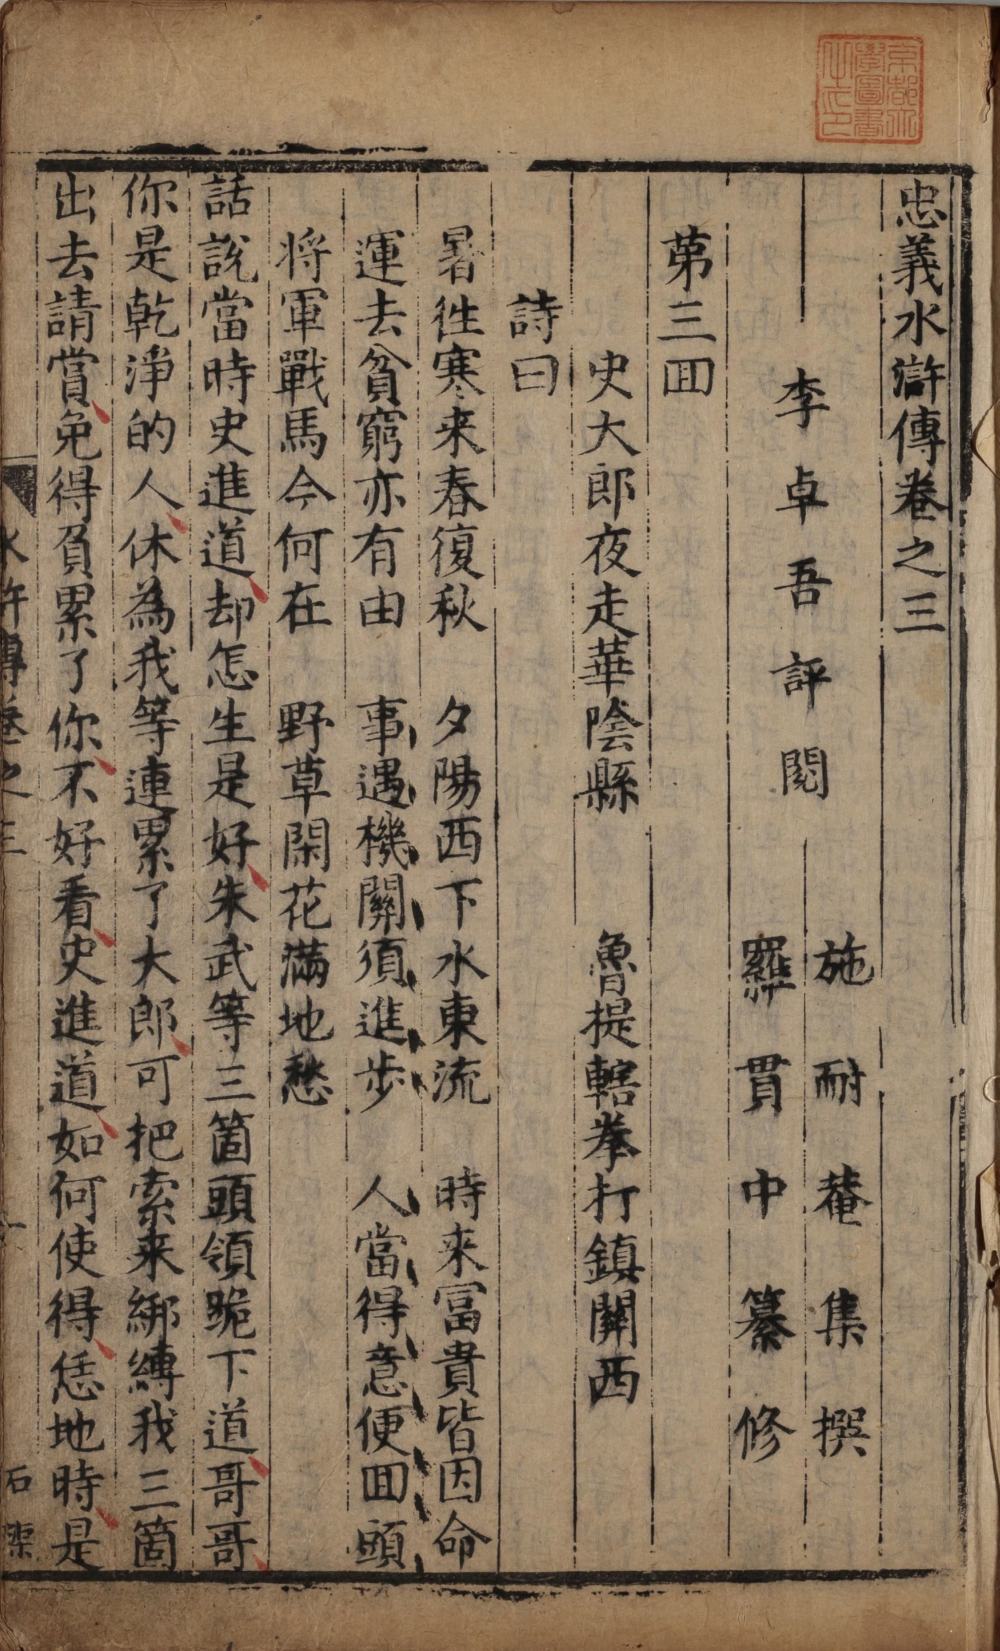 忠義水滸傳卷之三
李卓吾評閱
施耐菴集撰
羅貫中纂修
第三囬
史大郎夜走華陰縣　魯提轄拳打鎮關西
詩曰
暑徃寒来春復秋　夕陽西下水東流　時来冨貴皆因命
運去貧窮亦有由　事遇機關須進步　人當得意便囬頭
将軍戰馬今何在　野草閑花滿地愁
話說當時史進道却怎生是好朱武等三箇頭領跪下道哥哥
你是乾淨的人休為我等連累了大郎可把索来綁縛我三箇
出去請賞免得負累了你不好看史進道如何使得恁地時是
水滸傳卷之三
一